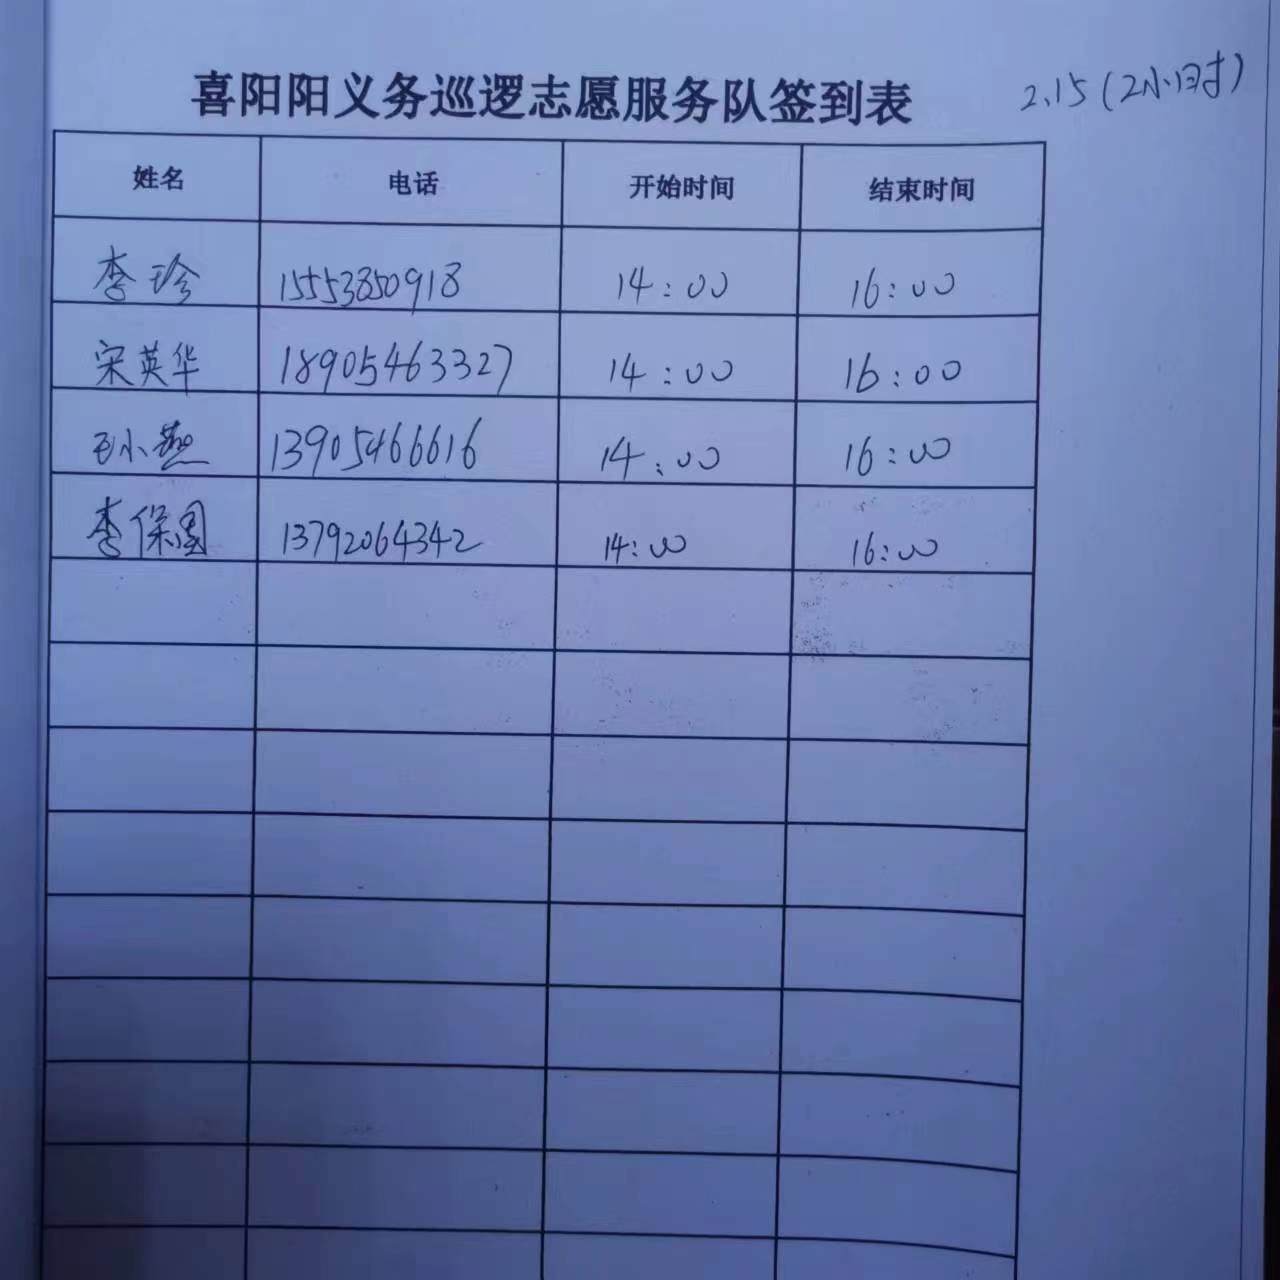 喜阳阳义务巡逻志愿服务队签到表 2.15(2小时)
姓名 电话 开始时间 结束时间
李珍 15553850918 14:00 16:00
宋英华 18905463327 14:00 16:00
王小燕 13905466616 14:00 16:00
李保国 13792064342 14:00 16:00